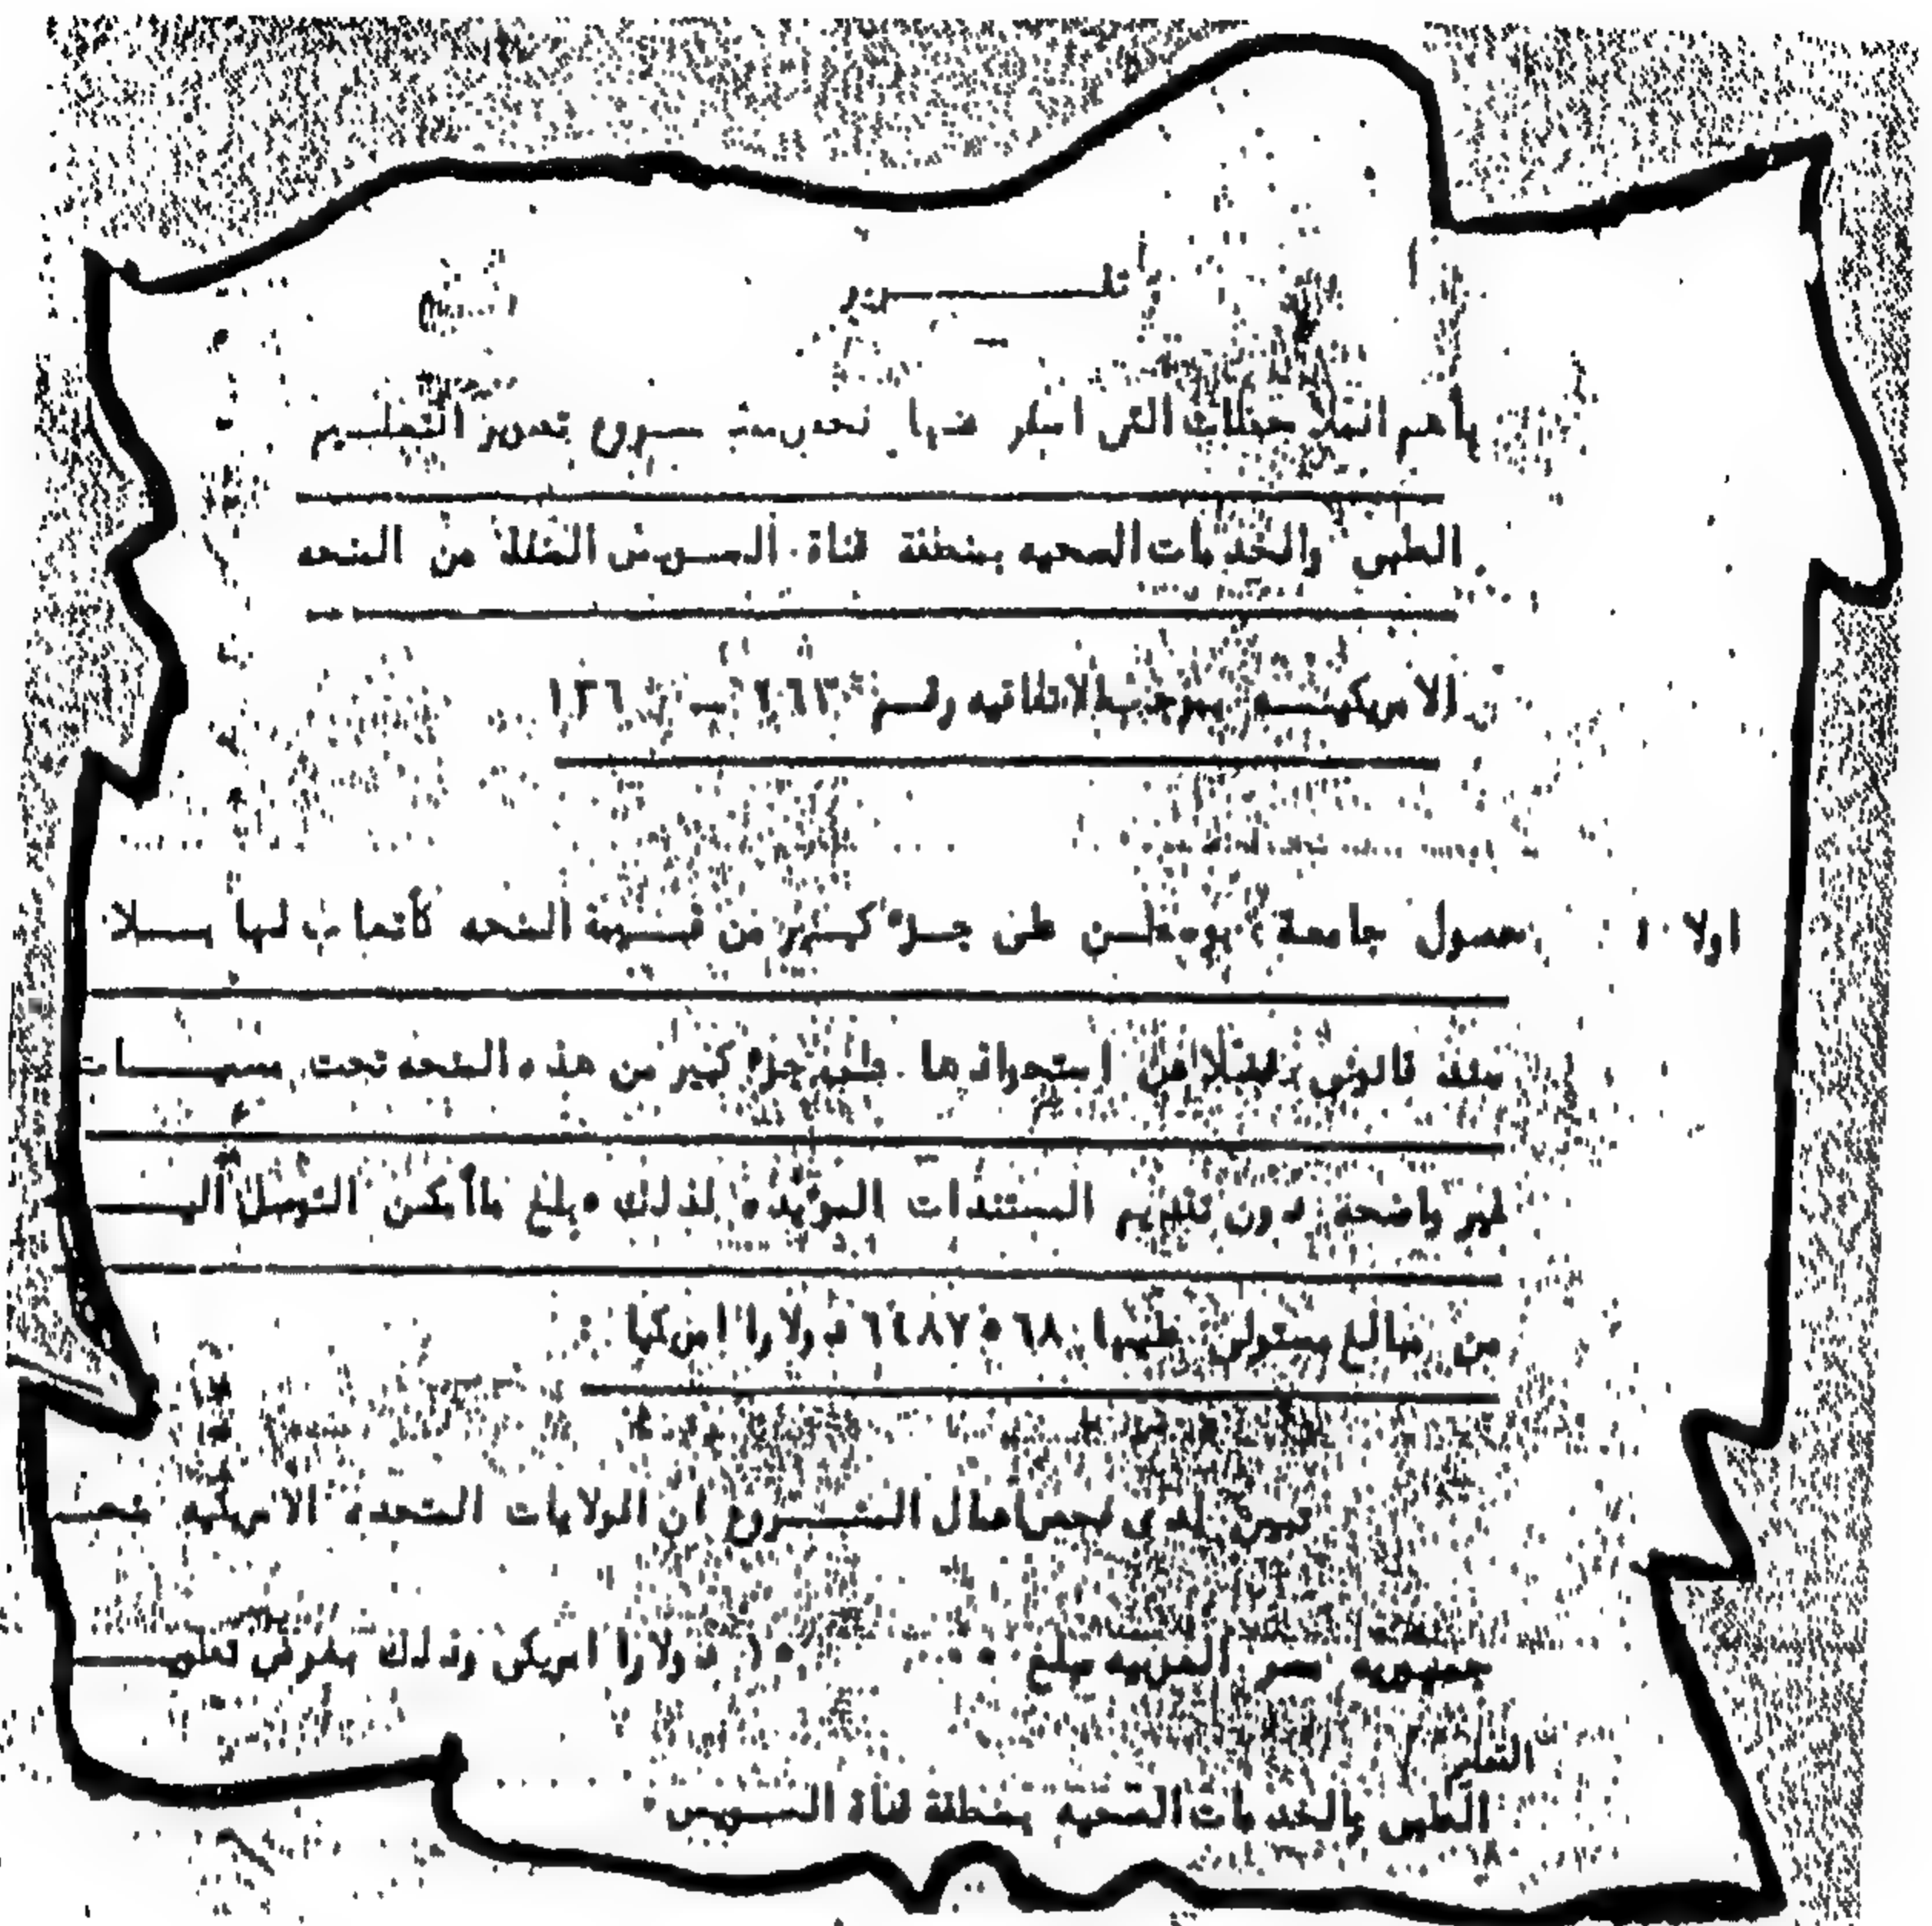 تقـــــرير
بأهم الملاحظات التى اسفر عنها فحص مشـــروع تطوير التعلـــيم
الطبى والخدمات الصحيه بمنطقة قناة السـويس الممثلة من المنحه
الامريكيـــه بموجب الاتفاقيه رقــم ٢٦٣ ـــ ١٣٦
اولا : حصول جامعة بوسطــن على جــزء كبــير من قيــمة المنحه كأتعاب لها بـــلا
سند قانونى فضلا عن استحواذها على جزء كبير من هذه المنحه تحت مسميـــــات
غير واضحة دون تقديم المستندات المؤيده لذلك وبلغ ماأمكن التوصل اليــــــه
من مبالغ مستولى عليها ٦٤٨٧٥٦٨ دولارا امريكيا
تبين لدى فحص اعمال المشـــروع ان الولايات المتحده الامريكيه منحت
جمهوريه مصر العربيه مبلغ دولارا امريكى وذلك بغرض تطويـــر
التعلم
الطبى والخدمات الصحيه بمنطقة قناة الســويس